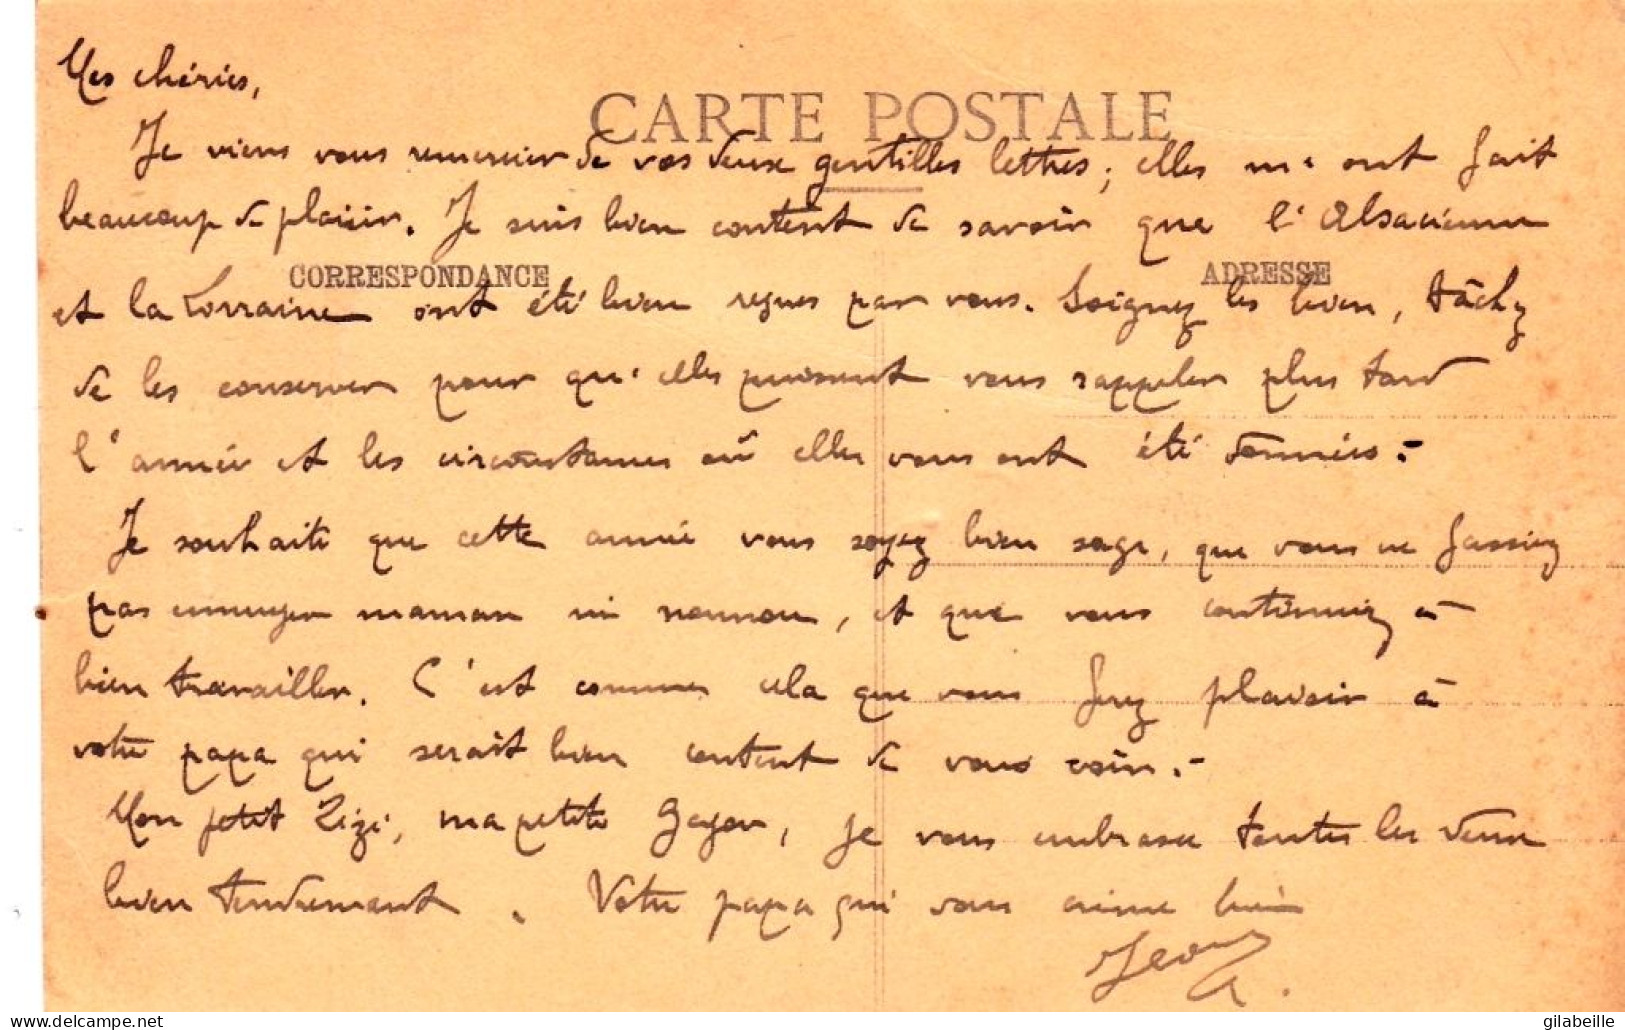 Mes chéries,
CARTE POSTALE
Je viens vous remercier de vos deux gentilles lettres ; elles m'ont fait
beaucoup de plaisir. Je suis bien content de savoir que l'Alsacienne
CORRESPONDANCE ADRESSE
et la Lorraine ont été bien reçues par vous. Soignez les bien, tâchez
de les conserver pour qu'elles puissent vous rappeler plus tard
l'année et les circonstances où elles vous ont été données.-
Je souhaite que cette année vous soyez bien sage, que vous ne fassiez
pas ennuyer maman ni nounou, et que vous continuiez à
bien travailler. C'est comme cela que vous ferez plaisir à
votre papa qui serait bien content de vous voir.-
Mon petit Zizi, ma petite, je vous embrasse toutes les deux
bien tendrement. Votre papa qui vous aime bien
Jean
gilabeille